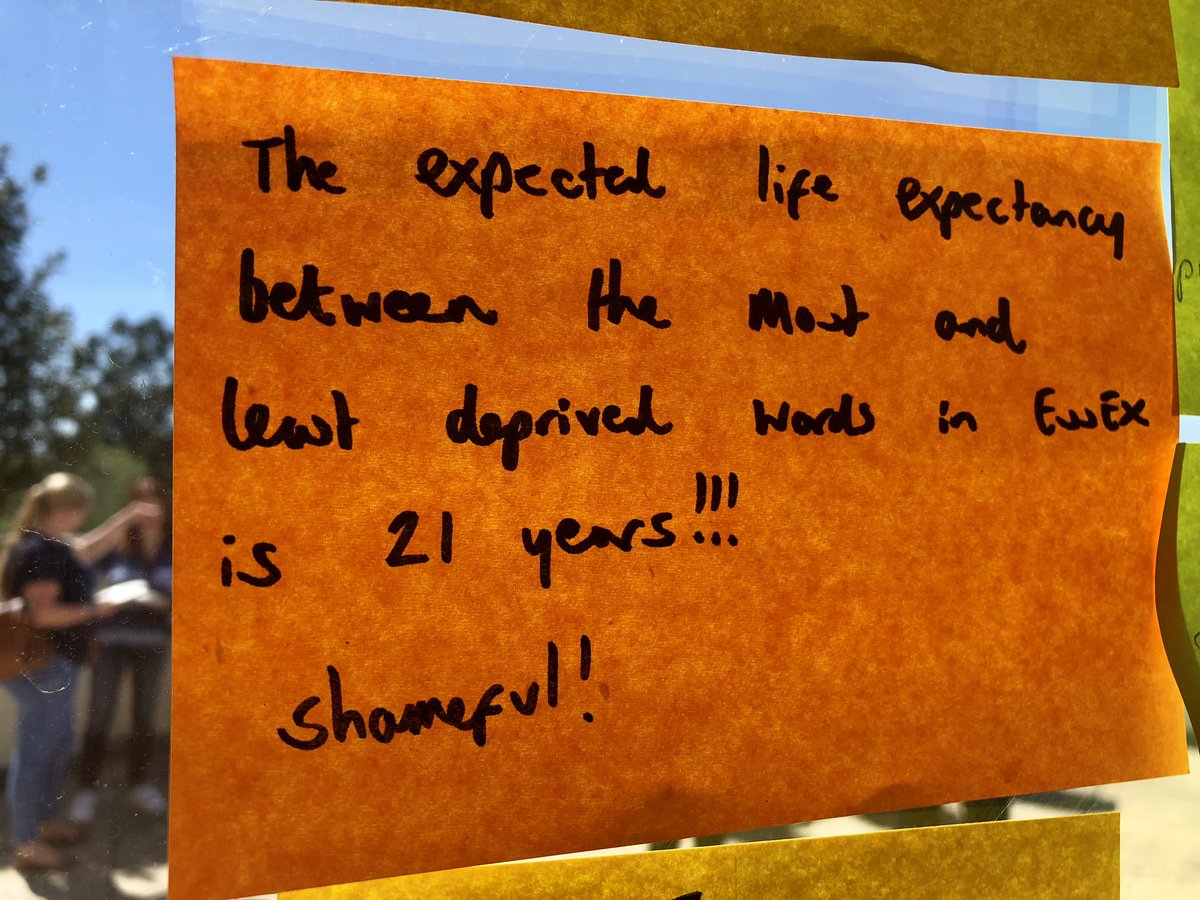 The expected life expectancy
between the most and
least deprived wards in EssEx
is 21 years!!!
shameful!